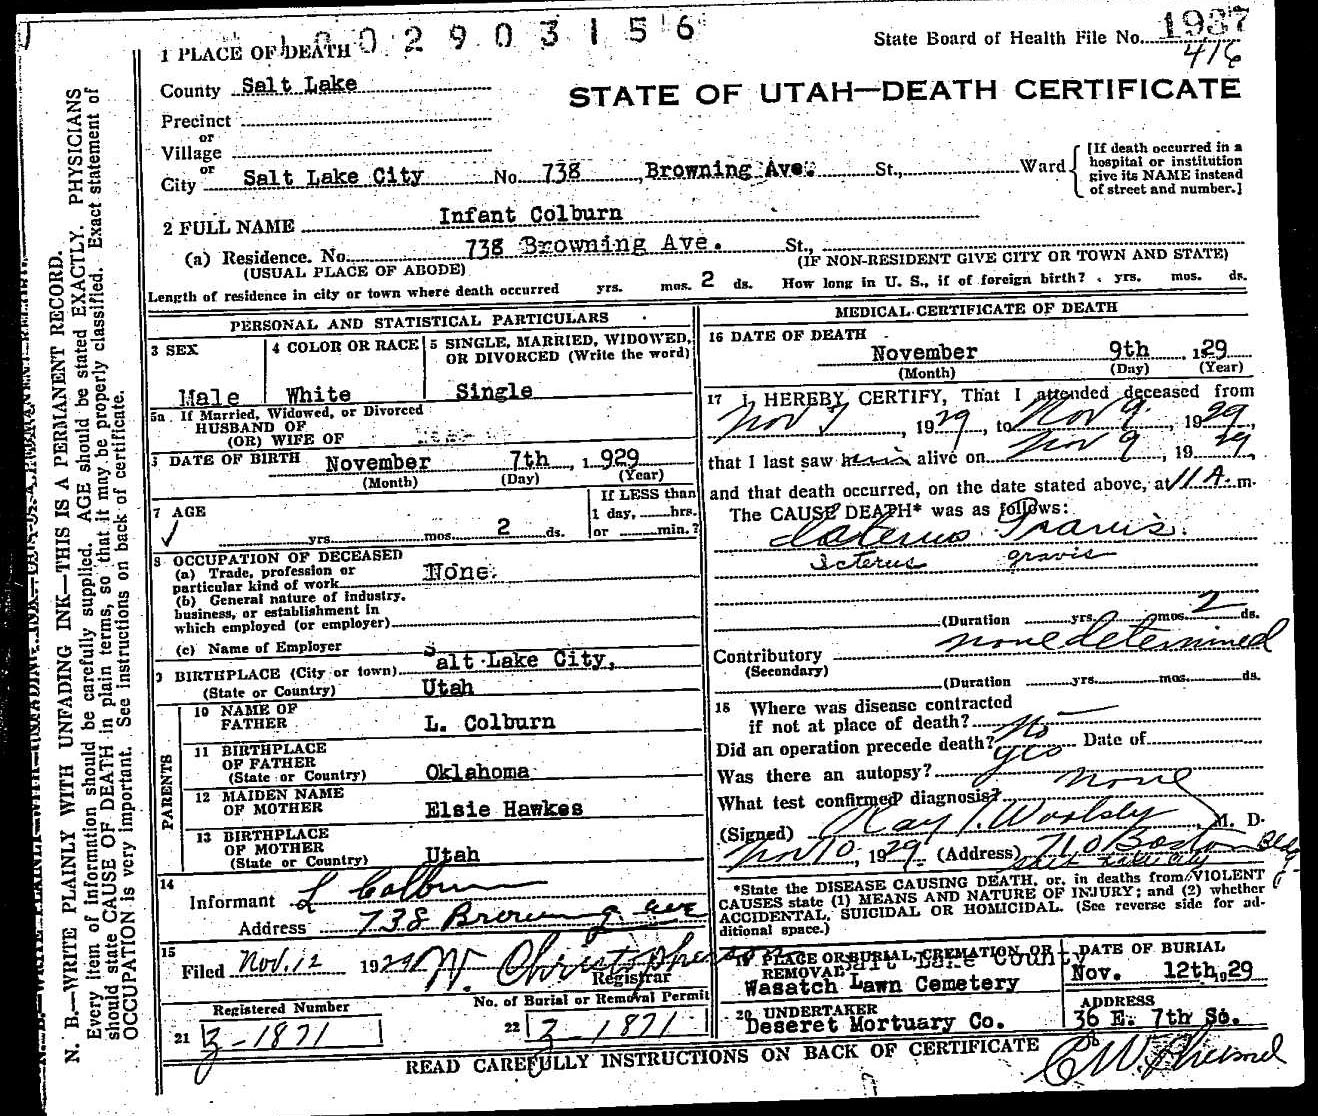 1 0 0 2 9 0 3 1 5 6
1 PLACE OF DEATH
State Board of Health File No. 1937
416
County Salt Lake
STATE OF UTAH—DEATH CERTIFICATE
Precinct
or
Village
or
City Salt Lake City No. 738 Browning Ave. St., Ward
[If death occurred in a
hospital or institution
give its NAME instead
of street and number.]
2 FULL NAME Infant Colburn
(a) Residence. No. 738 Browning Ave. St.,
(USUAL PLACE OF ABODE) (IF NON-RESIDENT GIVE CITY OR TOWN AND STATE)
Length of residence in city or town where death occurred yrs. mos. 2 ds. How long in U. S., if of foreign birth? yrs. mos. ds.
PERSONAL AND STATISTICAL PARTICULARS
3 SEX
Male
4 COLOR OR RACE
White
5 SINGLE, MARRIED, WIDOWED,
OR DIVORCED (Write the word)
Single
5a If Married, Widowed, or Divorced
HUSBAND OF
(OR) WIFE OF
DATE OF BIRTH November 7th, 1 929
(Month) (Day) (Year)
7 AGE
yrs. mos. 2 ds.
If LESS than
1 day, hrs.
or min.?
8 OCCUPATION OF DECEASED
(a) Trade, profession or
particular kind of work None.
(b) General nature of industry,
business, or establishment in
which employed (or employer)
(c) Name of Employer
9 BIRTHPLACE (City or town) Salt Lake City,
(State or Country) Utah
PARENTS
10 NAME OF
FATHER L. Colburn
11 BIRTHPLACE
OF FATHER
(State or Country) Oklahoma
12 MAIDEN NAME
OF MOTHER Elsie Hawkes
13 BIRTHPLACE
OF MOTHER
(State or Country) Utah
14
Informant L Colburn
Address 738 Browning ave
15
Filed Nov. 12 1929 W. Christopherson
Registrar
Registered Number
21 3-1871
No. of Burial or Removal Permit
22 3-1871
MEDICAL CERTIFICATE OF DEATH
16 DATE OF DEATH
November 9th, 1929
(Month) (Day) (Year)
17 I, HEREBY CERTIFY, That I attended deceased from
Nov 7, 1929, to Nov 9, 1929,
that I last saw him alive on Nov 9, 1929,
and that death occurred, on the date stated above, at 11 A. m.
The CAUSE DEATH* was as follows:
Icterus Gravis.
Icterus gravis
(Duration yrs. mos. 2 ds.
Contributory none determined
(Secondary)
(Duration yrs. mos. ds.
18 Where was disease contracted
if not at place of death?
Did an operation precede death? No Date of
Was there an autopsy? yes
What test confirmed diagnosis? none
(Signed) Ray T. Woolsey, M. D.
Nov 10, 1929 (Address) 710 Boston Bldg
Salt Lake City
*State the DISEASE CAUSING DEATH, or, in deaths from VIOLENT
CAUSES state (1) MEANS AND NATURE OF INJURY; and (2) whether
ACCIDENTAL, SUICIDAL OR HOMICIDAL. (See reverse side for ad-
ditional space.)
19 PLACE OR BURIAL, CREMATION, OR
REMOVAL Salt Lake County
Wasatch Lawn Cemetery
DATE OF BURIAL
Nov. 12th, 1929
20 UNDERTAKER
Deseret Mortuary Co.
ADDRESS
36 E. 7th So.
READ CAREFULLY INSTRUCTIONS ON BACK OF CERTIFICATE
N. B.—WRITE PLAINLY WITH UNFADING INK—THIS IS A PERMANENT RECORD.
Every item of information should be carefully supplied. AGE should be stated EXACTLY. PHYSICIANS
should state CAUSE OF DEATH in plain terms, so that it may be properly classified. Exact statement of
OCCUPATION is very important. See instructions on back of certificate.